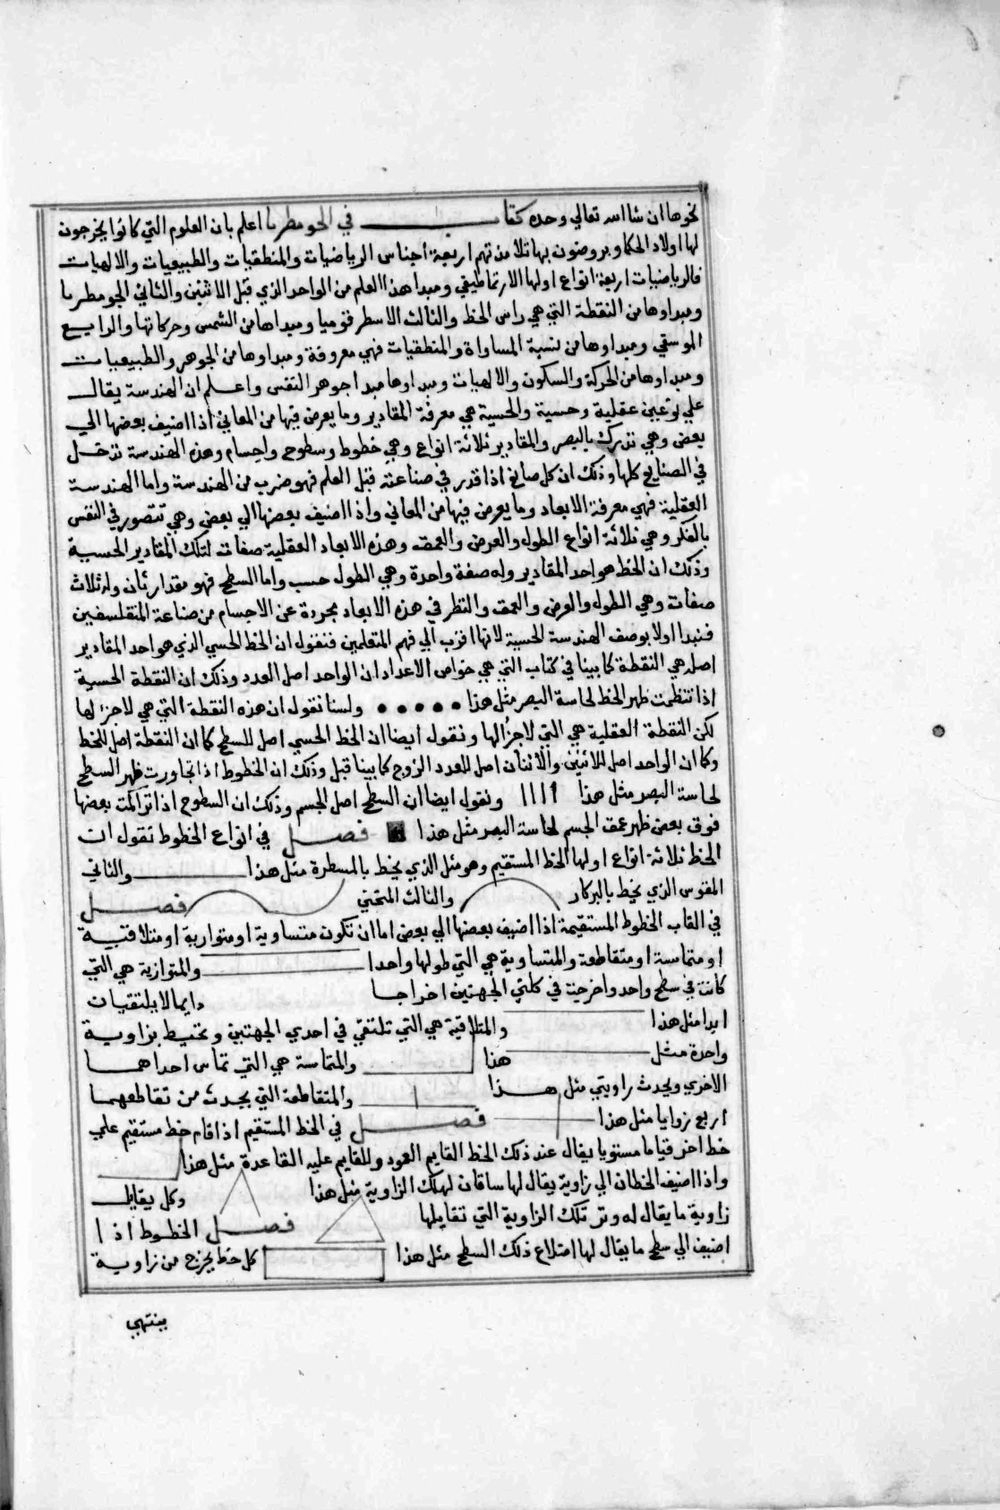 نحوها ان شا الله تعالي وحده كتاب في الجومطريا اعلم بان العلوم التي كانوا يخرجون
لها اولاد الحكما ويروضون بها تلامذتهم اربعة اجناس الرياضيات والمنطقيات والطبيعيات والالهيات
فالرياضيات اربعة انواع اولها الارتماطيقي ومبدا هذا العلم من الواحد الذي قبل الاثنين والثاني الجومطريا
ومبداوها من النقطة التي هي راس الخط والثالث الاسطرقوميا ومبداها من الشمس وحركاتها والرابع
الموسقي ومبداوها من نسبة المساواة والمنطقيات فهي معروفة ومبداوها من الجوهر والطبيعيات
ومبداوها من الحركة والسكون والالهيات ومبداوها مبدا جوهر النفس واعلم ان الهندسة يقال
علي نوعين عقلية وحسية والحسية هي معرفة المقادير وما يعرض فيها من المعاني اذا اضيف بعضها الي
بعض وهي تدرك بالبصر والمقادير ثلاثة انواع وهي خطوط وسطوح واجسام وهذه الهندسة تدخل
في الصنايع كلها وذلك ان كل صانع اذا قدر في صناعته قبل العلم فهو ضرب من الهندسة واما الهندسة
العقلية فهي معرفة الابعاد وما يعرض فيها من المعاني واذا اضيف بعضها الي بعض وهي تتصور في النفس
بالفكر وهي ثلاثة انواع الطول والعرض والعمق وهذه الابعاد العقلية صفات لتلك المقادير الحسية
وذلك ان الخط هو احد المقادير وله صفة واحدة وهي الطول حسب واما السطح فهو مقدار ثان وله ثلاث
صفات وهي الطول والعرض والعمق والنظر في هذه الابعاد مجردة عن الاجسام من صناعة المتفلسفين
فنبدا اولا بوصف الهندسة الحسية لانها اقرب الي فهم المتعلمين فنقول ان الخط الحسي الذي هو احد المقادير
اصله هي النقطة كما بينا في كتاب التي هي خواص الاعداد ان الواحد اصل العدد وذلك ان النقطة الحسية
اذا تنظمت ظهر الخط لحاسة البصر مثل هذا ولسنا نقول ان هذه النقطة التي هي لا جزء لها
لكن النقطة العقلية هي التي لا جزء لها ونقول ايضا ان الخط الحسي اصل للسطح كما ان النقطة اصل للخط
وكما ان الواحد اصل للاثنين والاثنان اصل للعدد الزوج كما بينا قبل وذلك ان الخطوط اذا تجاورت ظهر السطح
لحاسة البصر مثل هذا ونقول ايضا ان السطح اصل الجسم وذلك ان السطوح اذا تراكمت بعضها
فوق بعض ظهر عمق الجسم لحاسة البصر مثل هذا فصل في انواع الخطوط نقول ان
الخط ثلاثة انواع اولها الخط المستقيم وهو مثل الذي يخط بالمسطرة مثل هذا والثاني
المقوس الذي يخط بالبركار والثالث المنحني فصل
في القاب الخطوط المستقيمة اذا اضيف بعضها الي بعض اما ان تكون متساوية او متوازية او متلاقية
او متماسة او متقاطعة والمتساوية هي التي طولها واحدا والمتوازية هي التي
كانت في سطح واحد واخرجت في كلتي الجهتين اخراجا دايما لا يلتقيان
ابدا مثل هذا والمتلاقية هي التي تلتقي في احدي الجهتين وتحيط بزاوية
واحدة مثل هذا والمتماسة هي التي تماس احداهما
الاخري ويحدث زاويتي مثل هذا والمتقاطعة التي يحدث من تقاطعهما
اربع زوايا مثل هذا فصل في الخط المستقيم اذا قام خط مستقيم علي
خط اخر قياما مستويا يقال عند ذلك الخط القايم العمود وللقايم عليه القاعدة مثل هذا
واذا اضيف الخطان الي زاوية يقال لها ساقان لهلك الزاوية مثل هذا وكل يقابل
زاوية ما يقال له وتر تلك الزاوية التي تقابلها فصل الخطوط اذا
اضيف الي سطح ما يقال لها اضلاع ذلك السطح مثل هذا كل خط يخرج من زاوية
ينتهي